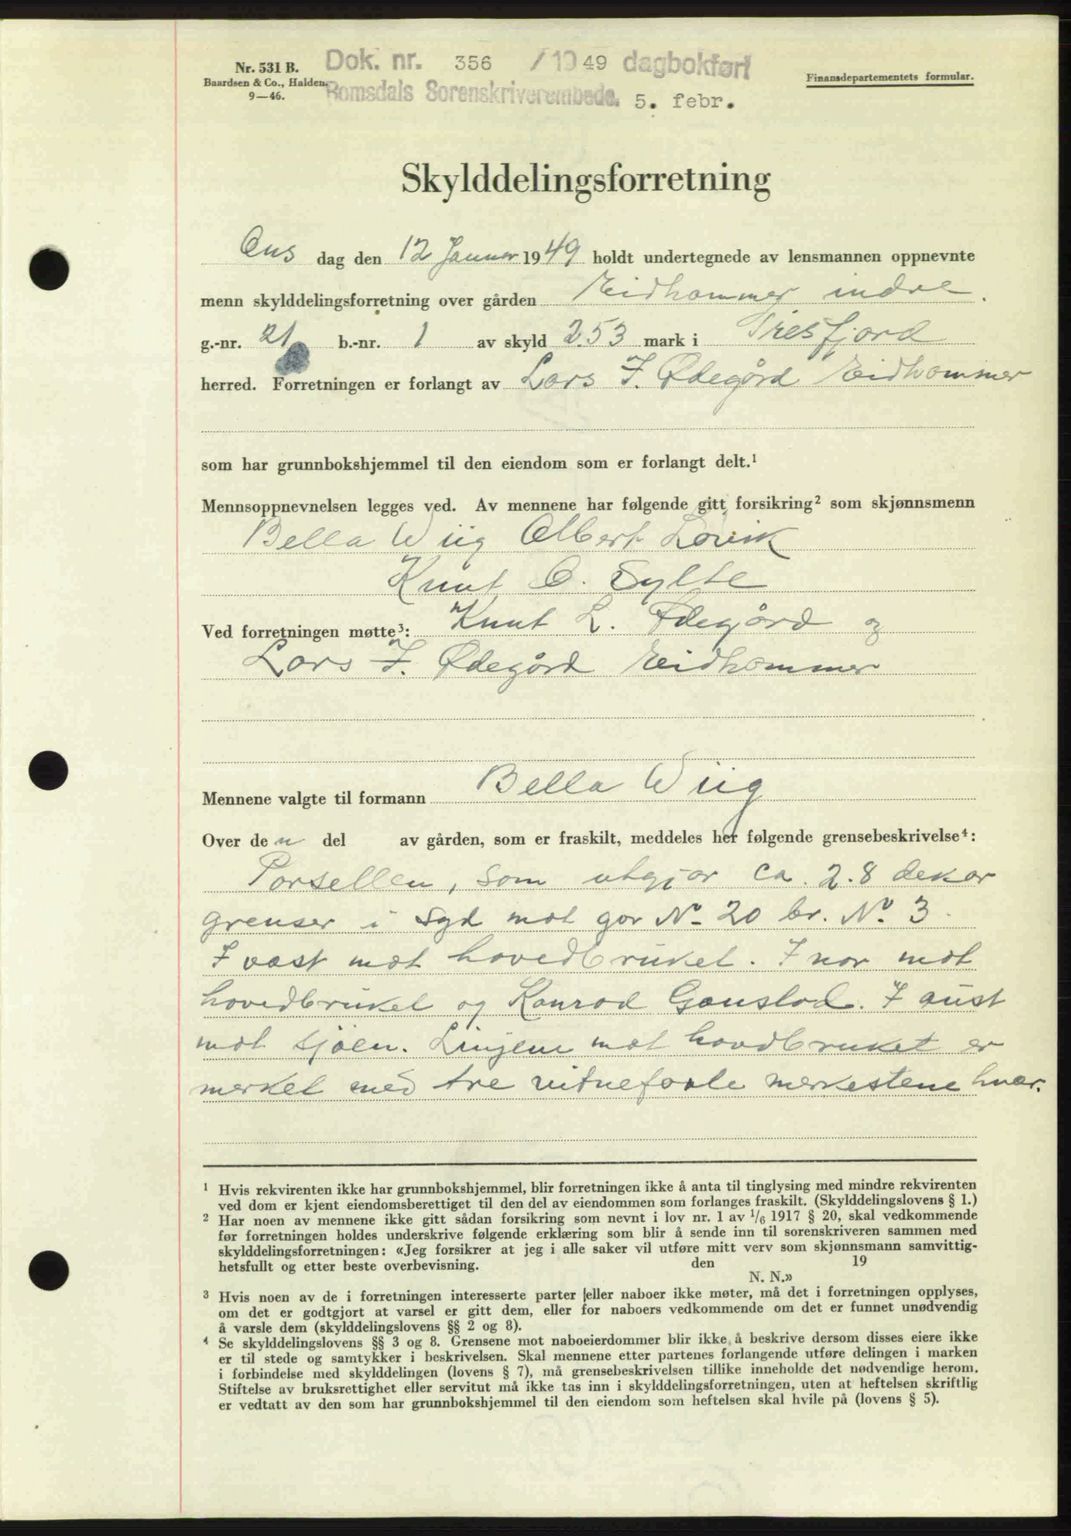 Nr. 531 B.
Baardsen & Co., Halden.
9—46.
Dok. nr. 356 / 1949 dagbokført
Romsdals Sorenskriverembede. 5. febr.
Finansdepartementets formular.
Skylddelingsforretning
Ons dag den 12 Januar 1949 holdt undertegnede av lensmannen oppnevnte
menn skylddelingsforretning over gården Eidhammer indre.
g.-nr. 21 b.-nr. 1 av skyld 2.53 mark i Tresfjord
herred. Forretningen er forlangt av Lars I. Ødegård Eidhammer
som har grunnbokshjemmel til den eiendom som er forlangt delt.¹
Mennsoppnevnelsen legges ved. Av mennene har følgende gitt forsikring² som skjønnsmenn
Bella Wiig Albert Løvik
Knut O. Sylte
Ved forretningen møtte³: Knut L. Ødegård og
Lars I. Ødegård Eidhammer
Mennene valgte til formann Bella Wiig
Over den del av gården, som er fraskilt, meddeles her følgende grensebeskrivelse⁴:
Parsellen, som utgjør ca. 2.8 dekar
grenser i syd mot går No 20 br. No 3.
I vest mot hovedbruket. I nor mot
hovedbruket og Konrad Gauslad. I aust
mot sjøen. Linjene mot hovdbruket er
merket med tre vitnefaste merkestene hver.
¹ Hvis rekvirenten ikke har grunnbokshjemmel, blir forretningen ikke å anta til tinglysing med mindre rekvirenten
ved dom er kjent eiendomsberettiget til den del av eiendommen som forlanges fraskilt. (Skylddelingslovens § 1.)
² Har noen av mennene ikke gitt sådan forsikring som nevnt i lov nr. 1 av 1/6 1917 § 20, skal vedkommende
før forretningen holdes underskrive følgende erklæring som blir å sende inn til sorenskriveren sammen med
skylddelingsforretningen: «Jeg forsikrer at jeg i alle saker vil utføre mitt verv som skjønnsmann samvittig-
hetsfullt og etter beste overbevisning. den 19
N. N.»
³ Hvis noen av de i forretningen interesserte parter eller naboer ikke møter, må det i forretningen opplyses,
om det er godtgjort at varsel er gitt dem, eller for naboers vedkommende om det er funnet unødvendig
å varsle dem (skylddelingslovens §§ 2 og 8).
⁴ Se skylddelingslovens §§ 3 og 8. Grensene mot naboeierdommer blir ikke å beskrive dersom disses eiere ikke
er til stede og samtykker i beskrivelsen. Skal mennene etter partenes forlangende utføre delingen i marken
i forbindelse med skylddelingen (lovens § 7), må grensebeskrivelsen tillike inneholde det nødvendige herom.
Stiftelse av bruksrettighet eller servitut må ikke tas inn i skylddelingsforretningen, uten at heftelsen skriftlig
er vedtatt av den som har grunnbokshjemmel til den eiendom som heftelsen skal hvile på (lovens § 5).